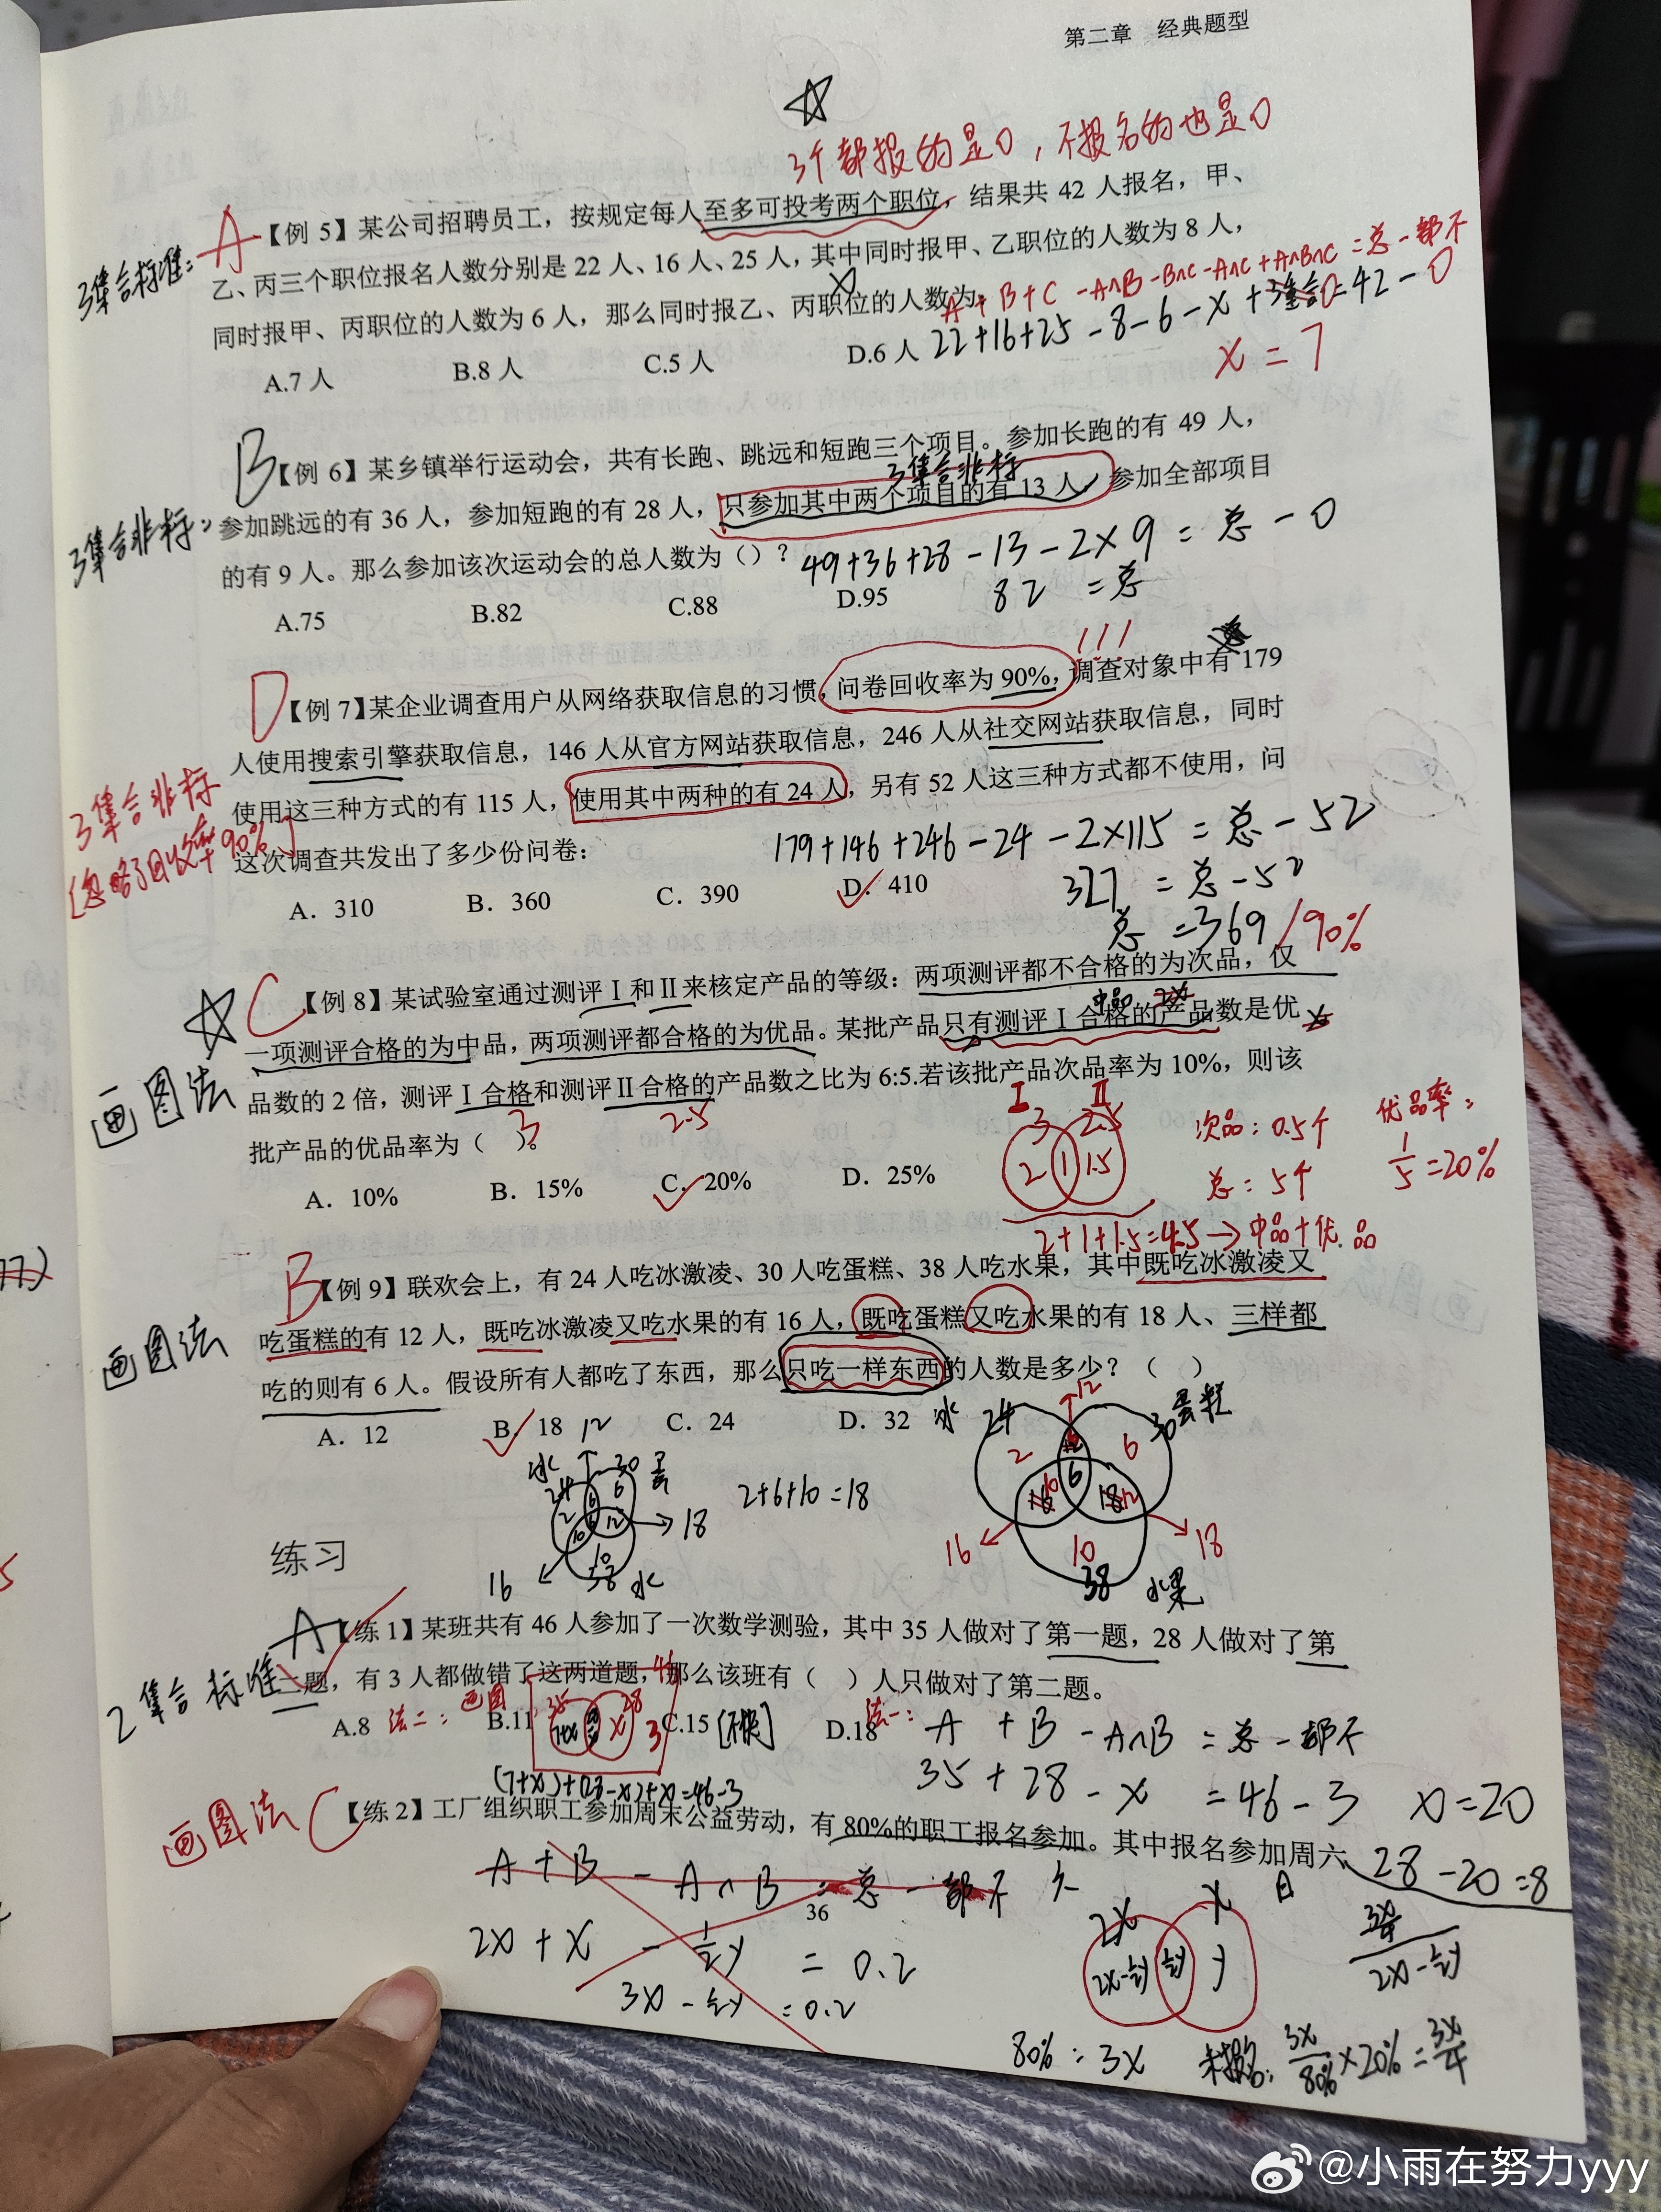 第二章 经典题型
☆
3个都报的是0，不报名的也是0
3集合标准： A 【例 5】某公司招聘员工，按规定每人至多可投考两个职位，结果共 42 人报名，甲、
乙、丙三个职位报名人数分别是 22 人、16 人、25 人，其中同时报甲、乙职位的人数为 8 人，
x
A + B + C - A∩B - B∩C - A∩C + A∩B∩C = 总 - 都不
同时报甲、丙职位的人数为 6 人，那么同时报乙、丙职位的人数为：
22+16+25-8-6-x+0=42-0
A.7 人 B.8 人 C.5 人 D.6 人
x = 7
B 【例 6】某乡镇举行运动会，共有长跑、跳远和短跑三个项目。参加长跑的有 49 人，
3集合非标
3集合非标： 参加跳远的有 36 人，参加短跑的有 28 人，只参加其中两个项目的有 13 人，参加全部项目
的有 9 人。那么参加该次运动会的总人数为（）？
49+36+28-13-2×9 = 总 - 0
A.75 B.82 C.88 D.95
82 = 总
!!!
D 【例 7】某企业调查用户从网络获取信息的习惯，问卷回收率为 90%，调查对象中有 179
人使用搜索引擎获取信息，146 人从官方网站获取信息，246 人从社交网站获取信息，同时
3集合非标 使用这三种方式的有 115 人，使用其中两种的有 24 人，另有 52 人这三种方式都不使用，问
[忽略了回收率90%]
这次调查共发出了多少份问卷：
179+146+246-24-2×115 = 总 - 52
A. 310 B. 360 C. 390 D. 410
327 = 总 - 52
总 = 369 /90%
☆ C 【例 8】某试验室通过测评Ⅰ和Ⅱ来核定产品的等级：两项测评都不合格的为次品，仅
中品 2x
一项测评合格的为中品，两项测评都合格的为优品。某批产品只有测评Ⅰ合格的产品数是优
x
画图法 品数的 2 倍，测评Ⅰ合格和测评Ⅱ合格的产品数之比为 6:5.若该批产品次品率为 10%，则该
3 2.5
批产品的优品率为（ ）。
A. 10% B. 15% C. 20% D. 25%
Ⅰ Ⅱ
3 2.5
2 1 1.5
次品：0.5个
总：5个
优品率：
1/5 = 20%
2+1+1.5=4.5→中品+优品
B 【例 9】联欢会上，有 24 人吃冰激凌、30 人吃蛋糕、38 人吃水果，其中既吃冰激凌又
画图法 吃蛋糕的有 12 人，既吃冰激凌又吃水果的有 16 人，既吃蛋糕又吃水果的有 18 人、三样都
吃的则有 6 人。假设所有人都吃了东西，那么只吃一样东西的人数是多少？（ ）
A. 12 B. 18 C. 24 D. 32
12
冰 24 30 蛋
2 6 6
10 12 → 18
10
16 38 水
2+6+10=18
12
冰 24 30 蛋糕
2 6
6
10 12
16 10 18
38 水果
练习
A 【练 1】某班共有 46 人参加了一次数学测验，其中 35 人做对了第一题，28 人做对了第
2集合标准 二题，有 3 人都做错了这两道题，那么该班有（ ）人只做对了第二题。
A.8 B.11 C.15 D.18
法二：画图
46
35 28
7+x x 3
[不快]
法一：
A + B - A∩B = 总 - 都不
(7+x)+(28-x)+x=46-3
35 + 28 - x = 46 - 3 x=20
画图法 C 【练 2】工厂组织职工参加周末公益劳动，有 80%的职工报名参加。其中报名参加周六、
28-20=8
A + B - A∩B = 总 - 都不
36
2x + x - ½y = 0.2
3x - ½y = 0.2
六 日
2x x
2x-½y ½y y
3x/4
2x-½y
80%：3x
未报名：3x/80%×20%=3x/4
@小雨在努力yyy